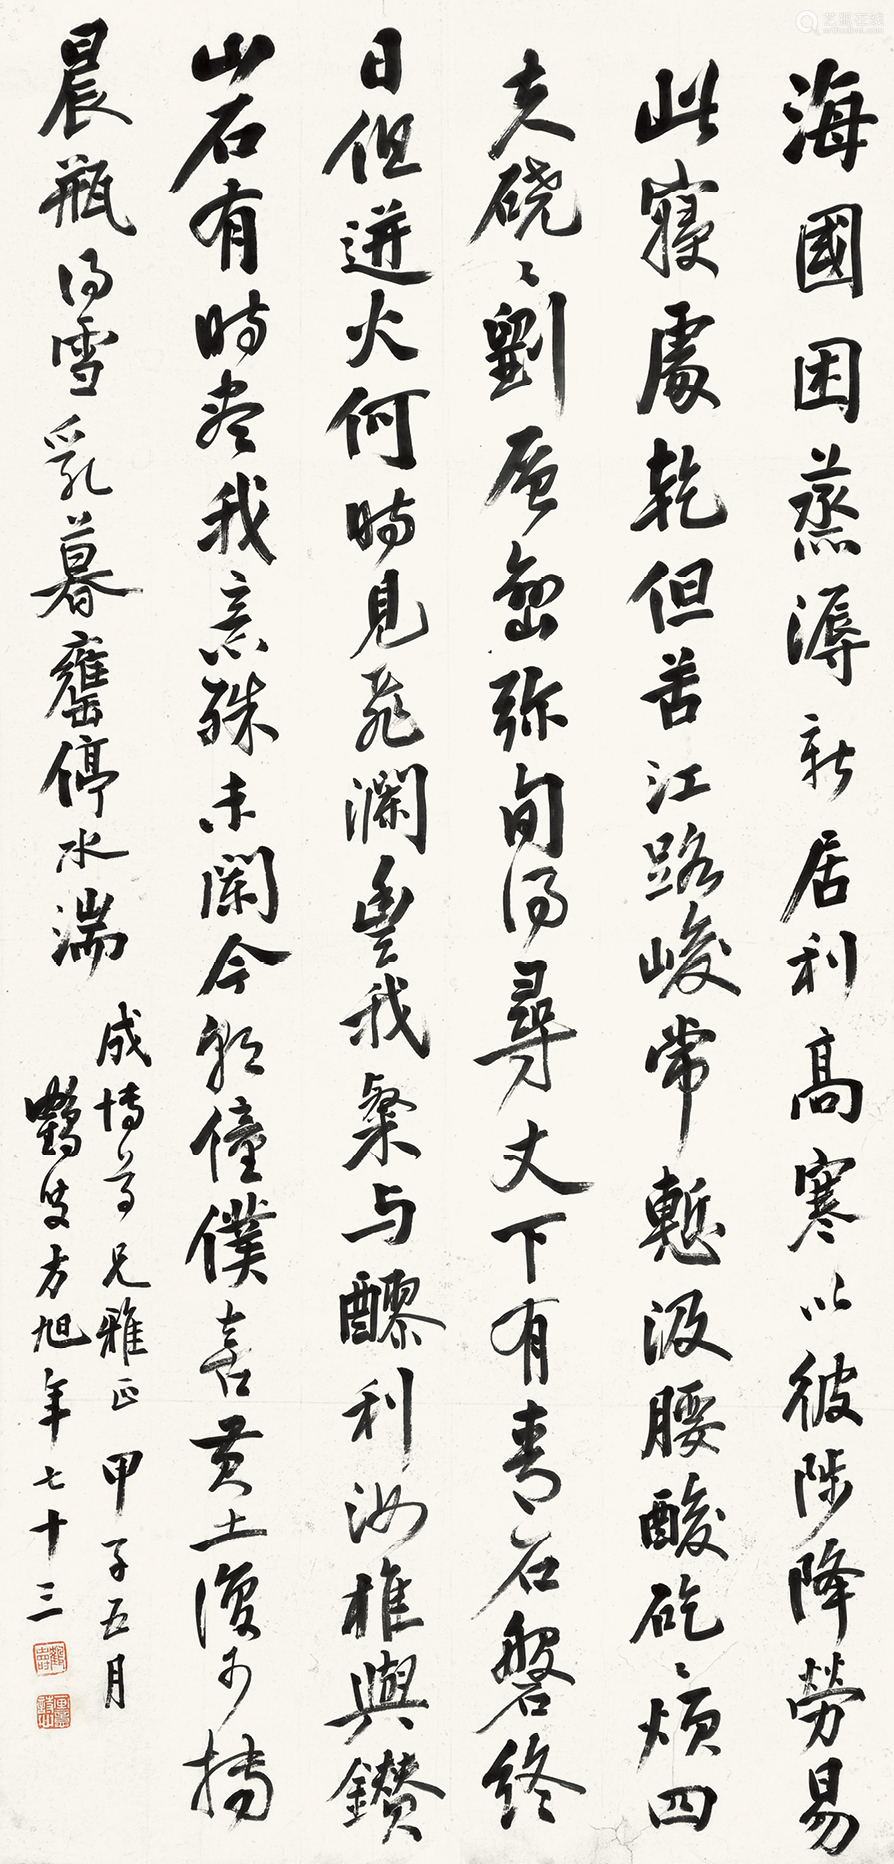 海國困蒸溽新居利高寒以彼陟降勞易
此寢處乾但苦江路峻常慙汲腰酸矻矻煩四
夫硗硗劚層巒弥旬得尋丈下有青石磐終
日但迸火何時見飛瀾豐我粲与醪利汝椎與鑽
山石有時盡我意殊未闌今朝僮僕喜黄土復可摶
晨瓶得雪乳暮罋停水湍
成博尊兄雅正 甲子五月
鶴叟方旭年七十三
艺狐在线
artfoxlive.com